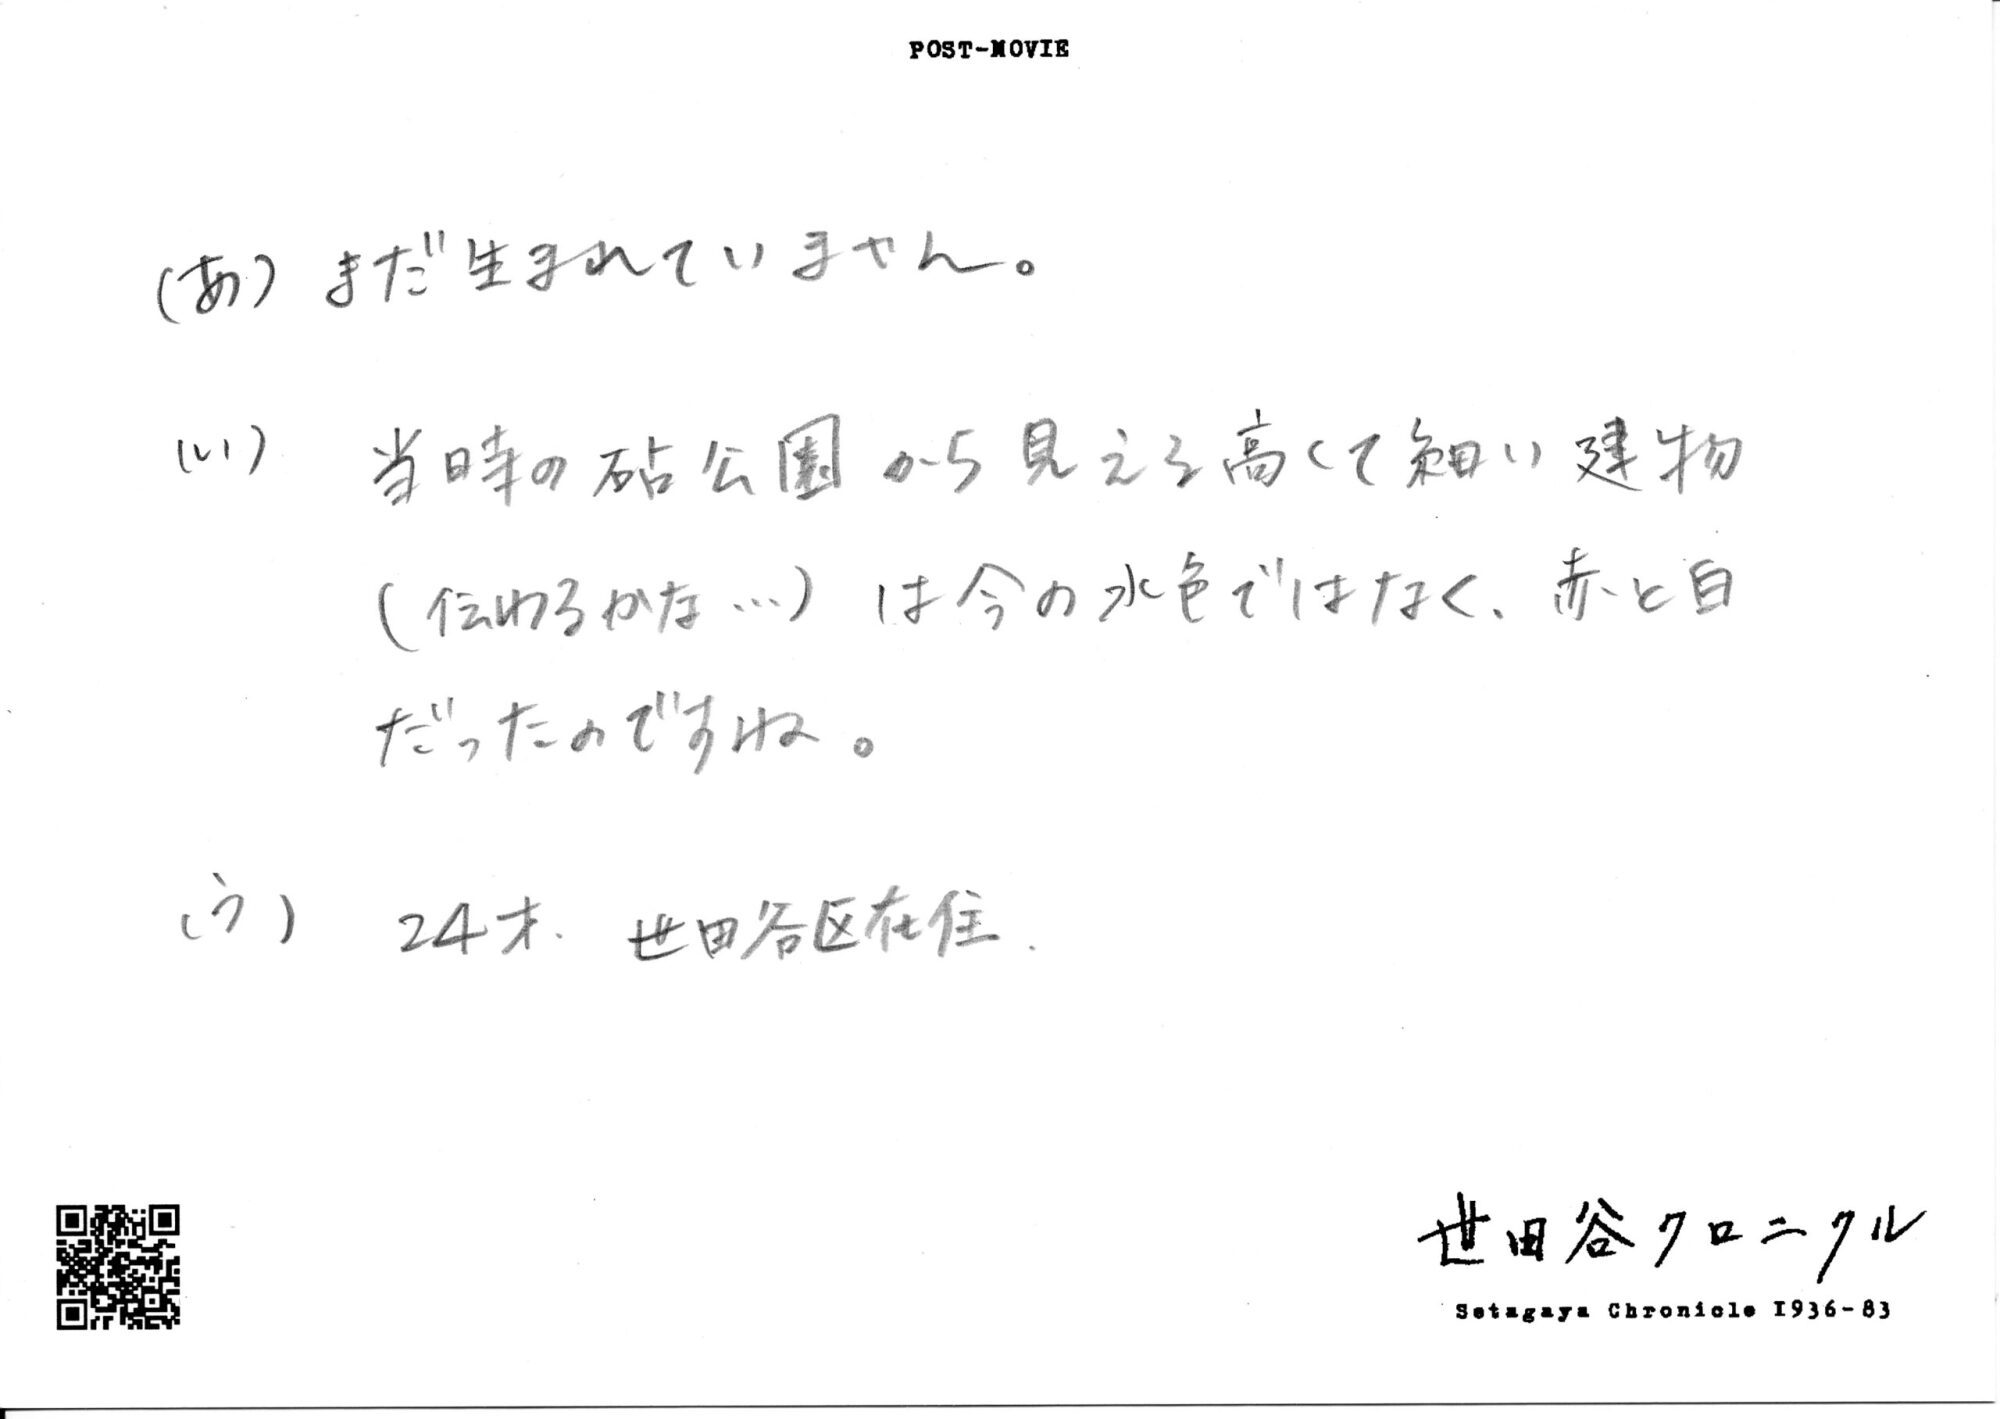 POST-MOVIE
(あ) まだ生まれていません。
(い) 当時の砧公園から見える高くて細い建物
(伝わるかな…)は今の水色ではなく、赤と白
だったのですね。
(う) 24才. 世田谷区在住.
世田谷クロニクル
Setagaya Chronicle 1936-83